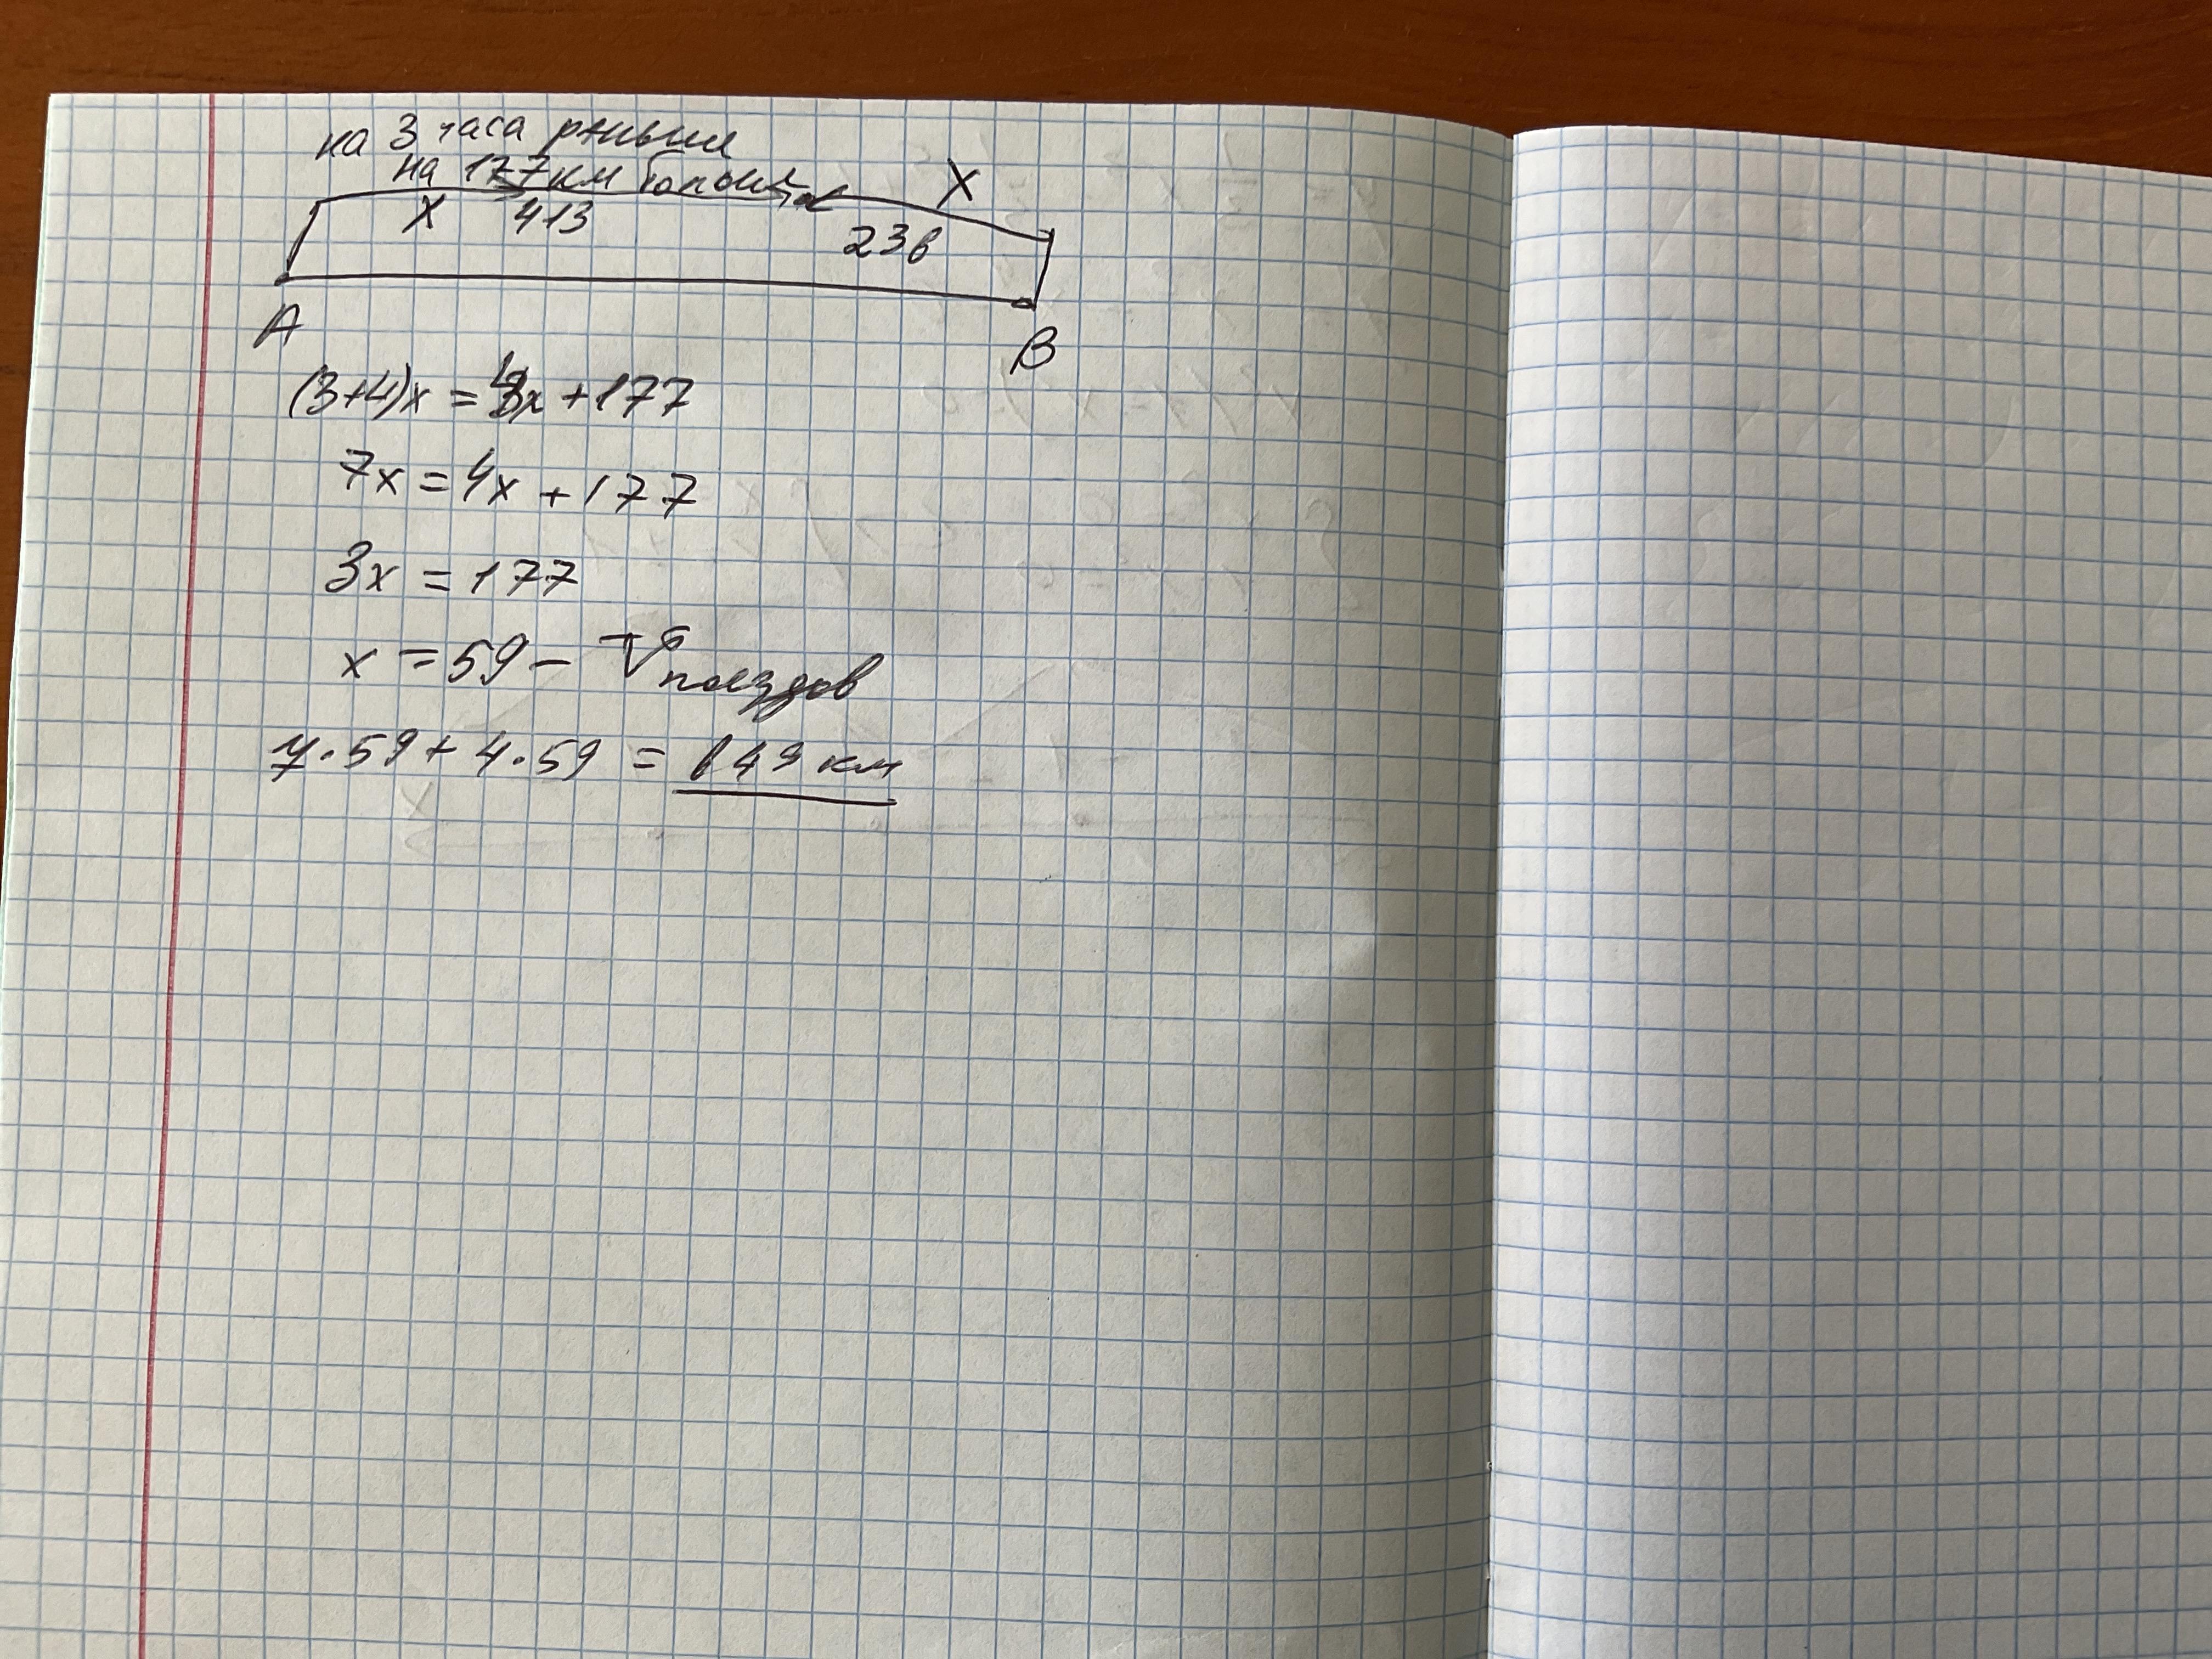 на 3 часа раньше
на 177 км больше
X 413 236 X
A B
(3+4)x = 4x + 177
7x = 4x + 177
3x = 177
x = 59 - V поездов
7·59 + 4·59 = 649 км